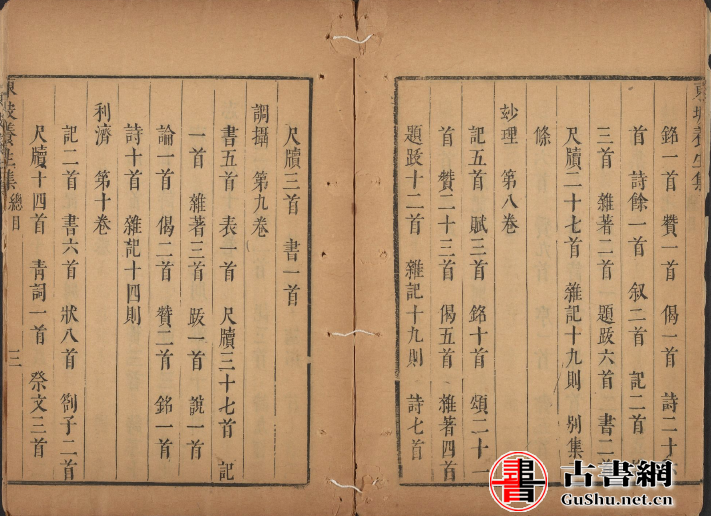 東坡養生集
銘一首 贊一首 偈一首 詩二十
首 詩餘一首 叙二首 記二首
三首 雜著二首 題跋六首 書二首
尺牘二十七首 雜記十九則 别集
條
玅理 第八卷
記五首 賦三首 銘十首 頌二十一
首 贊二十三首 偈五首 雜著四首
題跋十二首 雜記十九則 詩七首
尺牘三首 書一首
調攝 第九卷
書五首 表一首 尺牘三十七首 記
一首 雜著三首 跋一首 說一首
論一首 偈二首 贊二首 銘一首
詩十首 雜記十四則
利濟 第十卷
記二首 書六首 狀八首 劄子二首
尺牘十四首 青詞一首 祭文三首
東坡養生集 總目 三
書 古書網
GuShu.net.cn